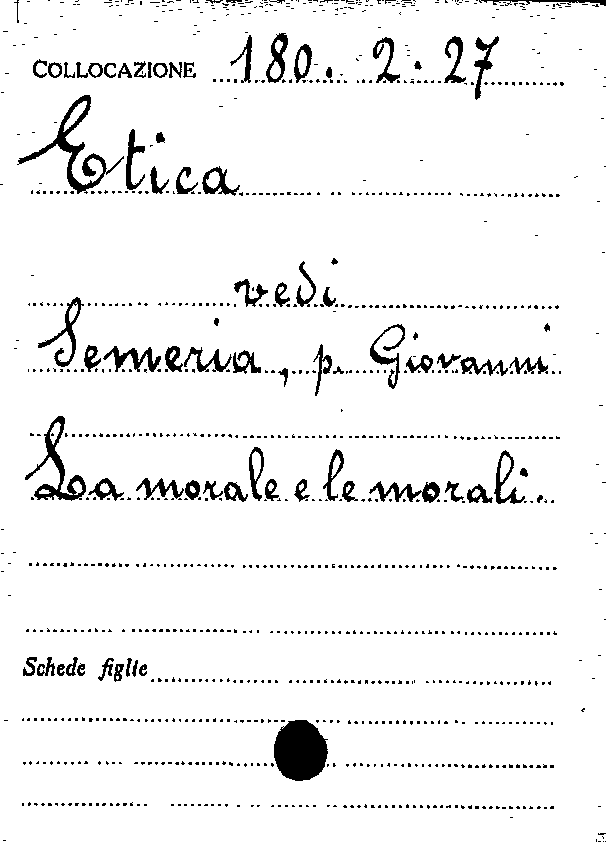 COLLOCAZIONE 180. 2. 27
Etica
vedi
Semeria, p. Giovanni
La morale e le morali.
Schede figlie